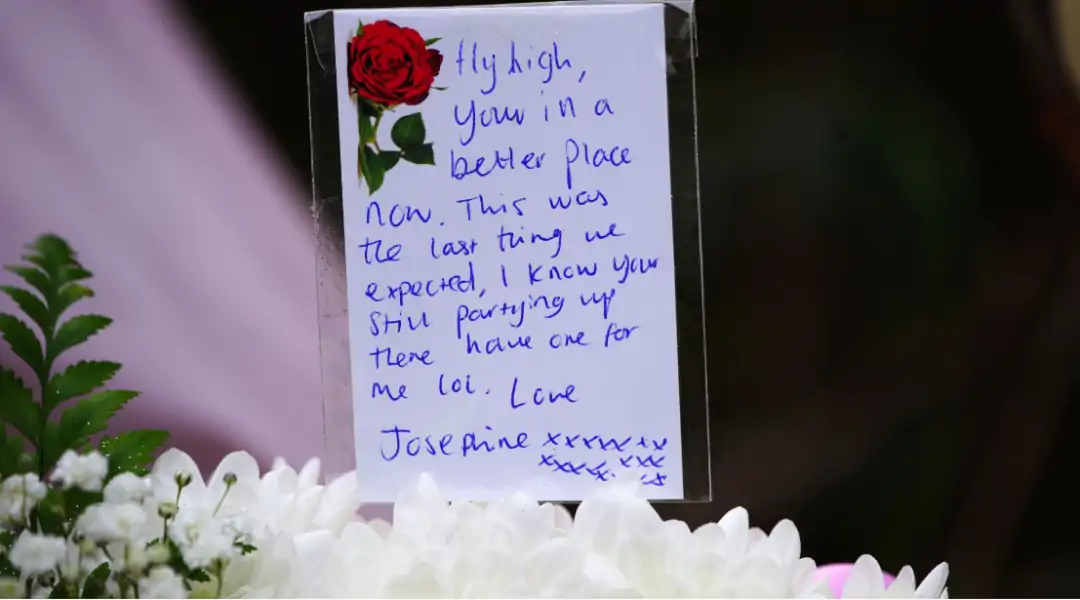 fly high,
Your in a
better place
now. This was
the last thing we
expected, I know your
still partying up
there have one for
me lol. Love
Josephine xxxxxxxx
xxxxx xxx
xx